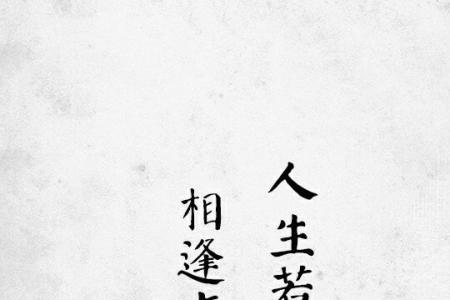 人生若
相逢